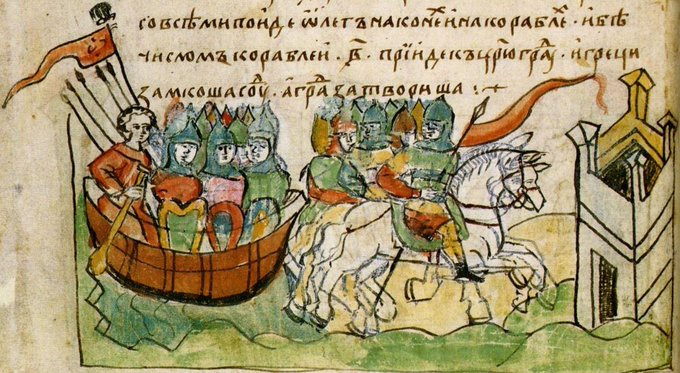 совсѣмипоиде ѡлегънаконеⷯинакораблеⷯ · ибѣ
числомъкораблеи · в҃ · прїидекъцр҃югра́ⷣ · игреци
замкошасоуⷣ · аграⷣзатвориша :+